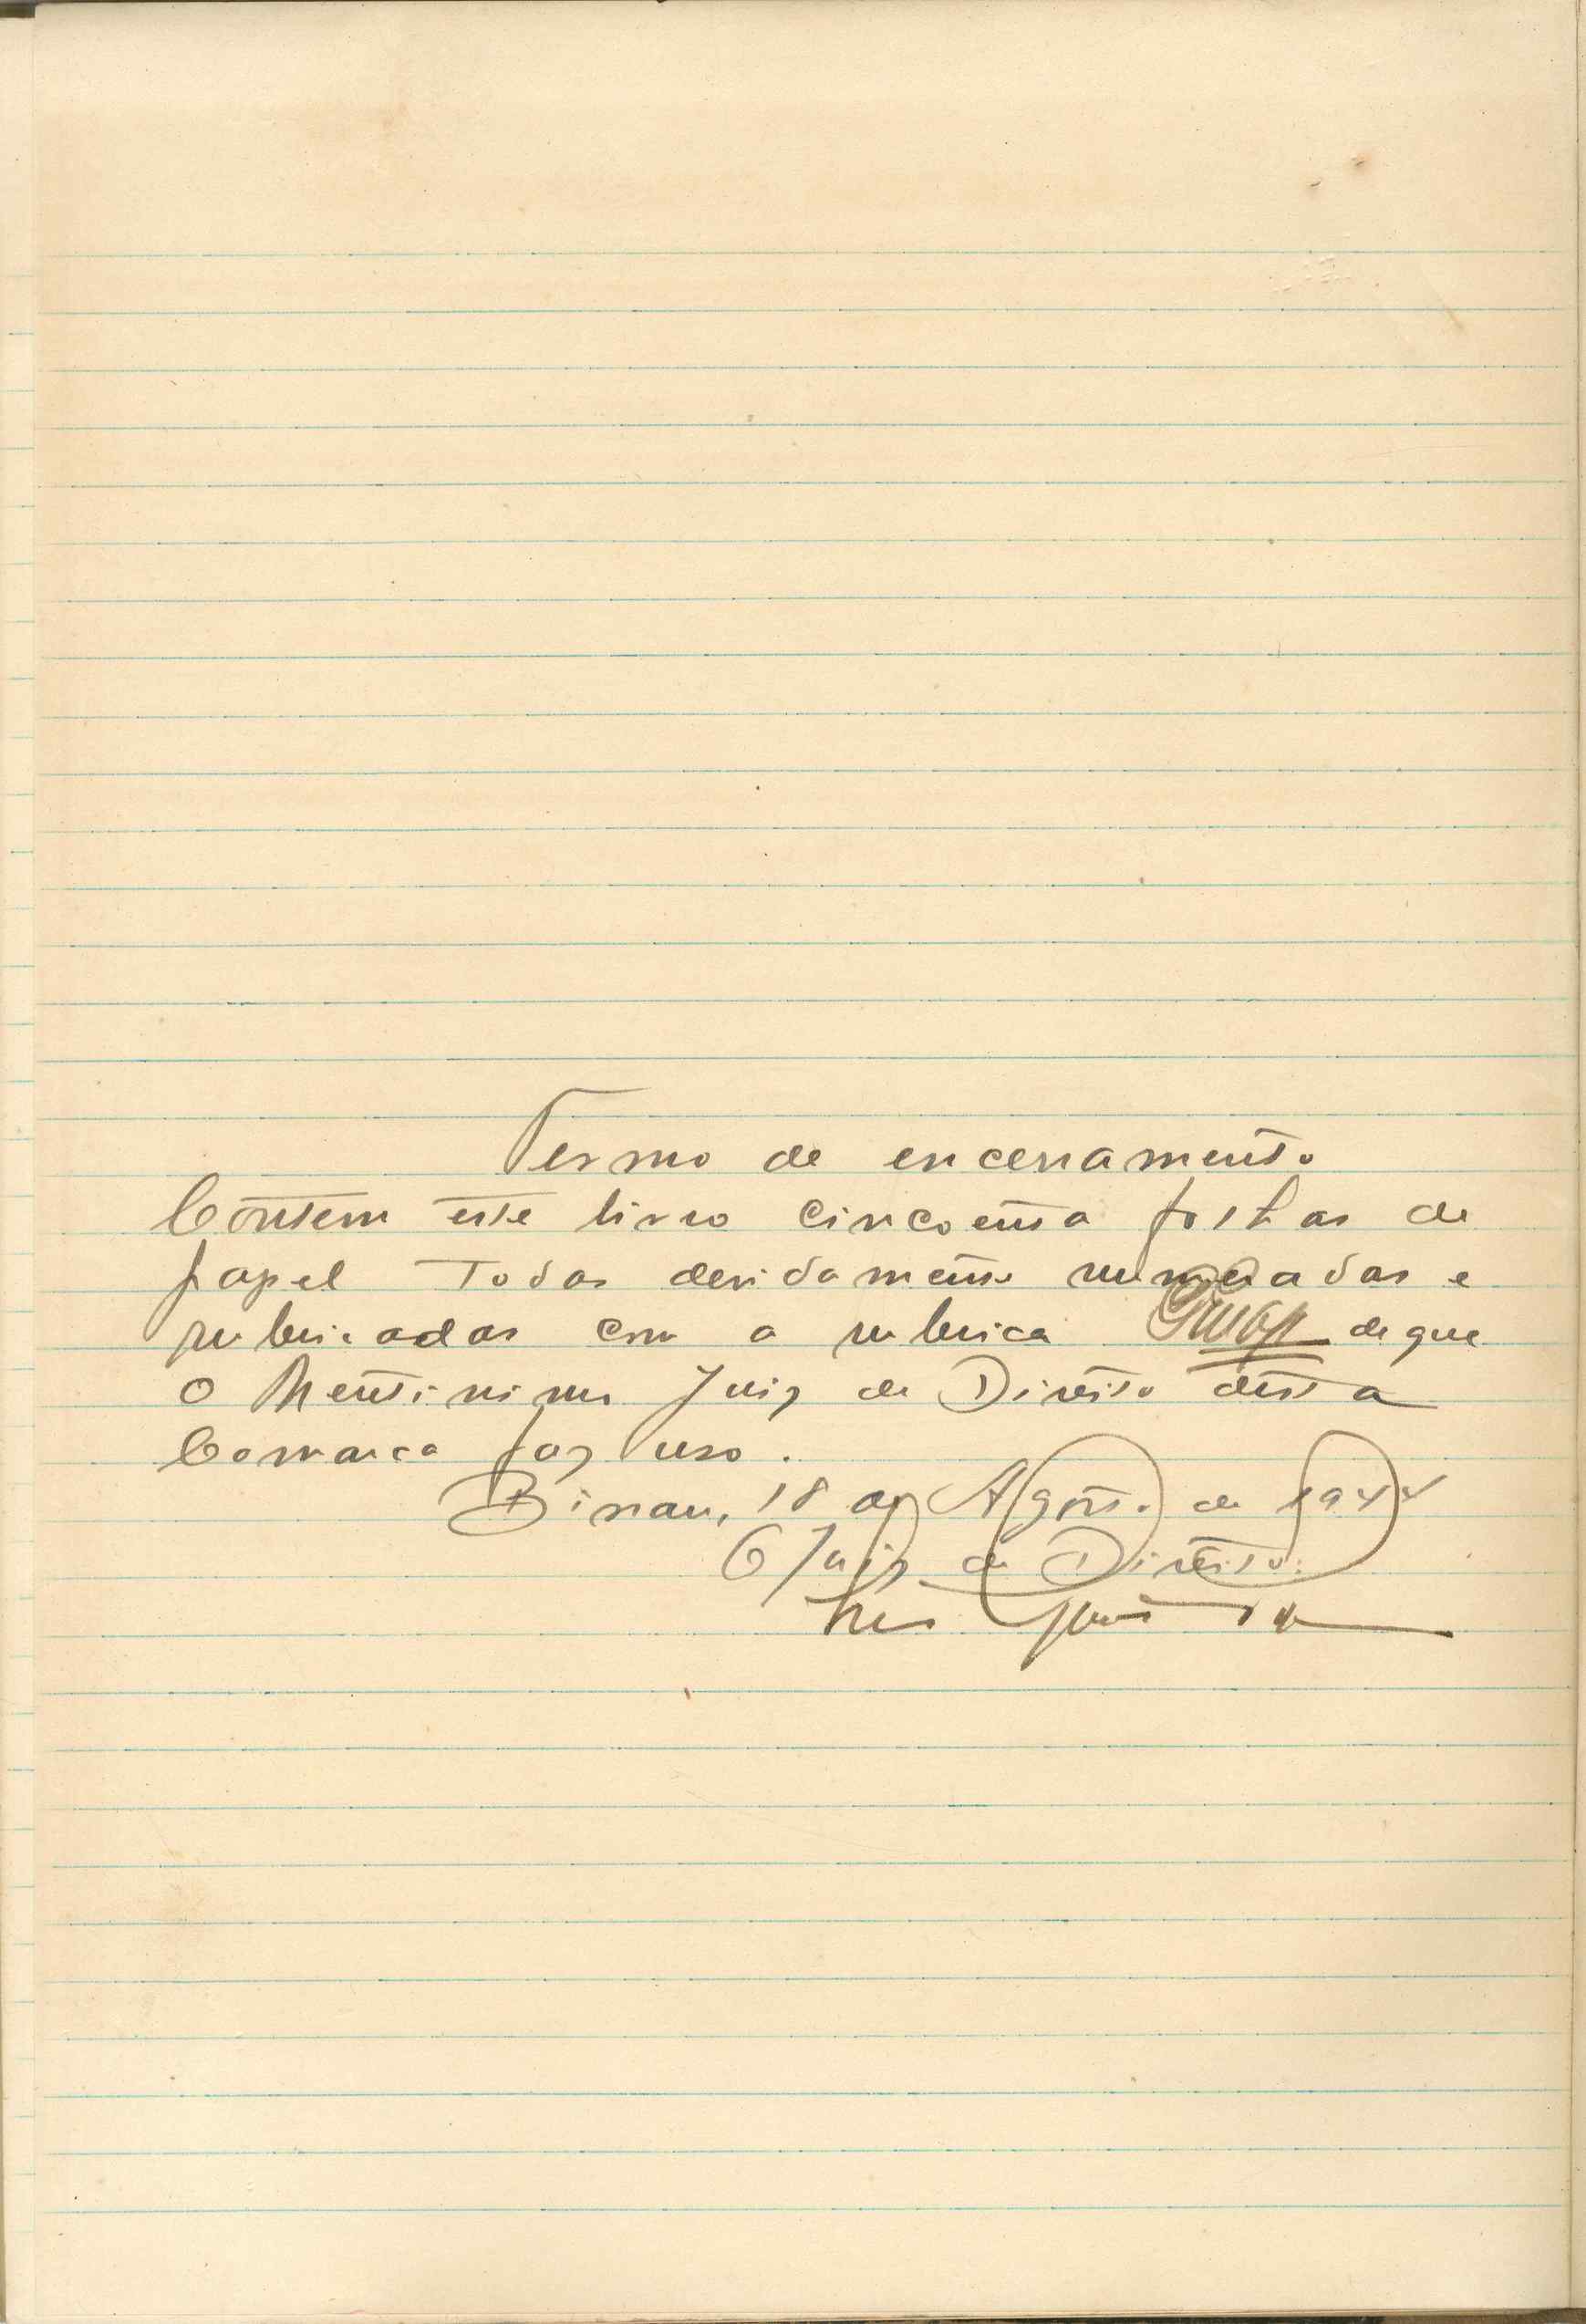 Termo de encerramento
Contem este livro cincoenta folhas de
papel todas devidamente numeradas e
rubricadas com a rubrica de que
o Meritissimo Juiz de Direito desta
Comarca faz uso.
18 de Agosto de 1944
O Juiz de Direito: